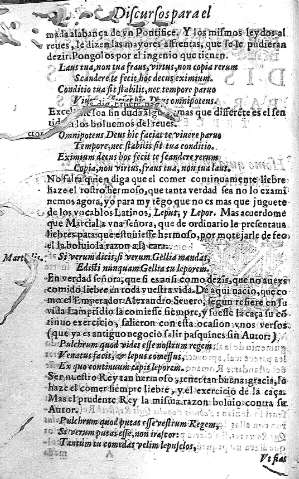 Discursos para el
mada alabança de vn Pontifice. Y los mismos leydos al
reues, le dizen las mayores afrentas, que se le pudieran
dezir. Pongolos por el ingenio que tienen.
Laus tua, non tua fraus, virtus, non copia rerum
Scandere te fecit hoc decus eximium.
Conditio tua sit stabilis, nec tempore paruo
Deus omnipotens.
mas que diferẽte es el sen
si los boluemos del reues.
Omnipotens Deus hic faciat te viuere paruo
Tempore, nec stabilis sit tua conditio.
Eximium decus hoc fecit te scandere rerum
Copia, non virtus, fraus tua, non tua laus.
No falta quien diga que el comer continuamente liebre
haze el rostro hermoso, que tanta verdad sea no lo exami
nemos agora, yo para my tẽgo que no es mas que juguete
de los vocablos Latinos, Lepus, y Lepor. Mas acuerdome
que Marcial a vna señora, que de ordinario le presentaua
liebres para que estuuiesse hermoso, por motejarle de feo
el la boluio la razon a la cara.
Si verum dicis, si verum Gellia mandas,
Edisti nunquam Gellia tu leporem.
En verdad señora, que si es ansi como dezis, que no aueys
comido liebre en toda vuestra vida. De aqui nacio, que co
mo el Emperador Alexandro Seuero, segun refiere en su
vida Lampridio la comiesse siempre, y fuesse la caça su cõ
tinuo exercicio, salieron con esta ocasion vnos versos
(que ya es antiguo negocio salir pasquines sin Autor.)
Pulchrum quod vides esse nostrum regem
Venatus facit, & lepus comessus,
Ex quo continuum capit leporem.
Ser nuestro Rey tan hermoso, y tener tan buena gracia, lo
haze el comer siempre liebre, y el exercicio de la caça.
Mas el prudente Rey la misma razon boluio contra su
Autor.
Pulchrum quod putas esse vestrum Regem,
Si verum putas esse, non irascor:
Tantum tu comedas velim lepusclos,
Vt fias